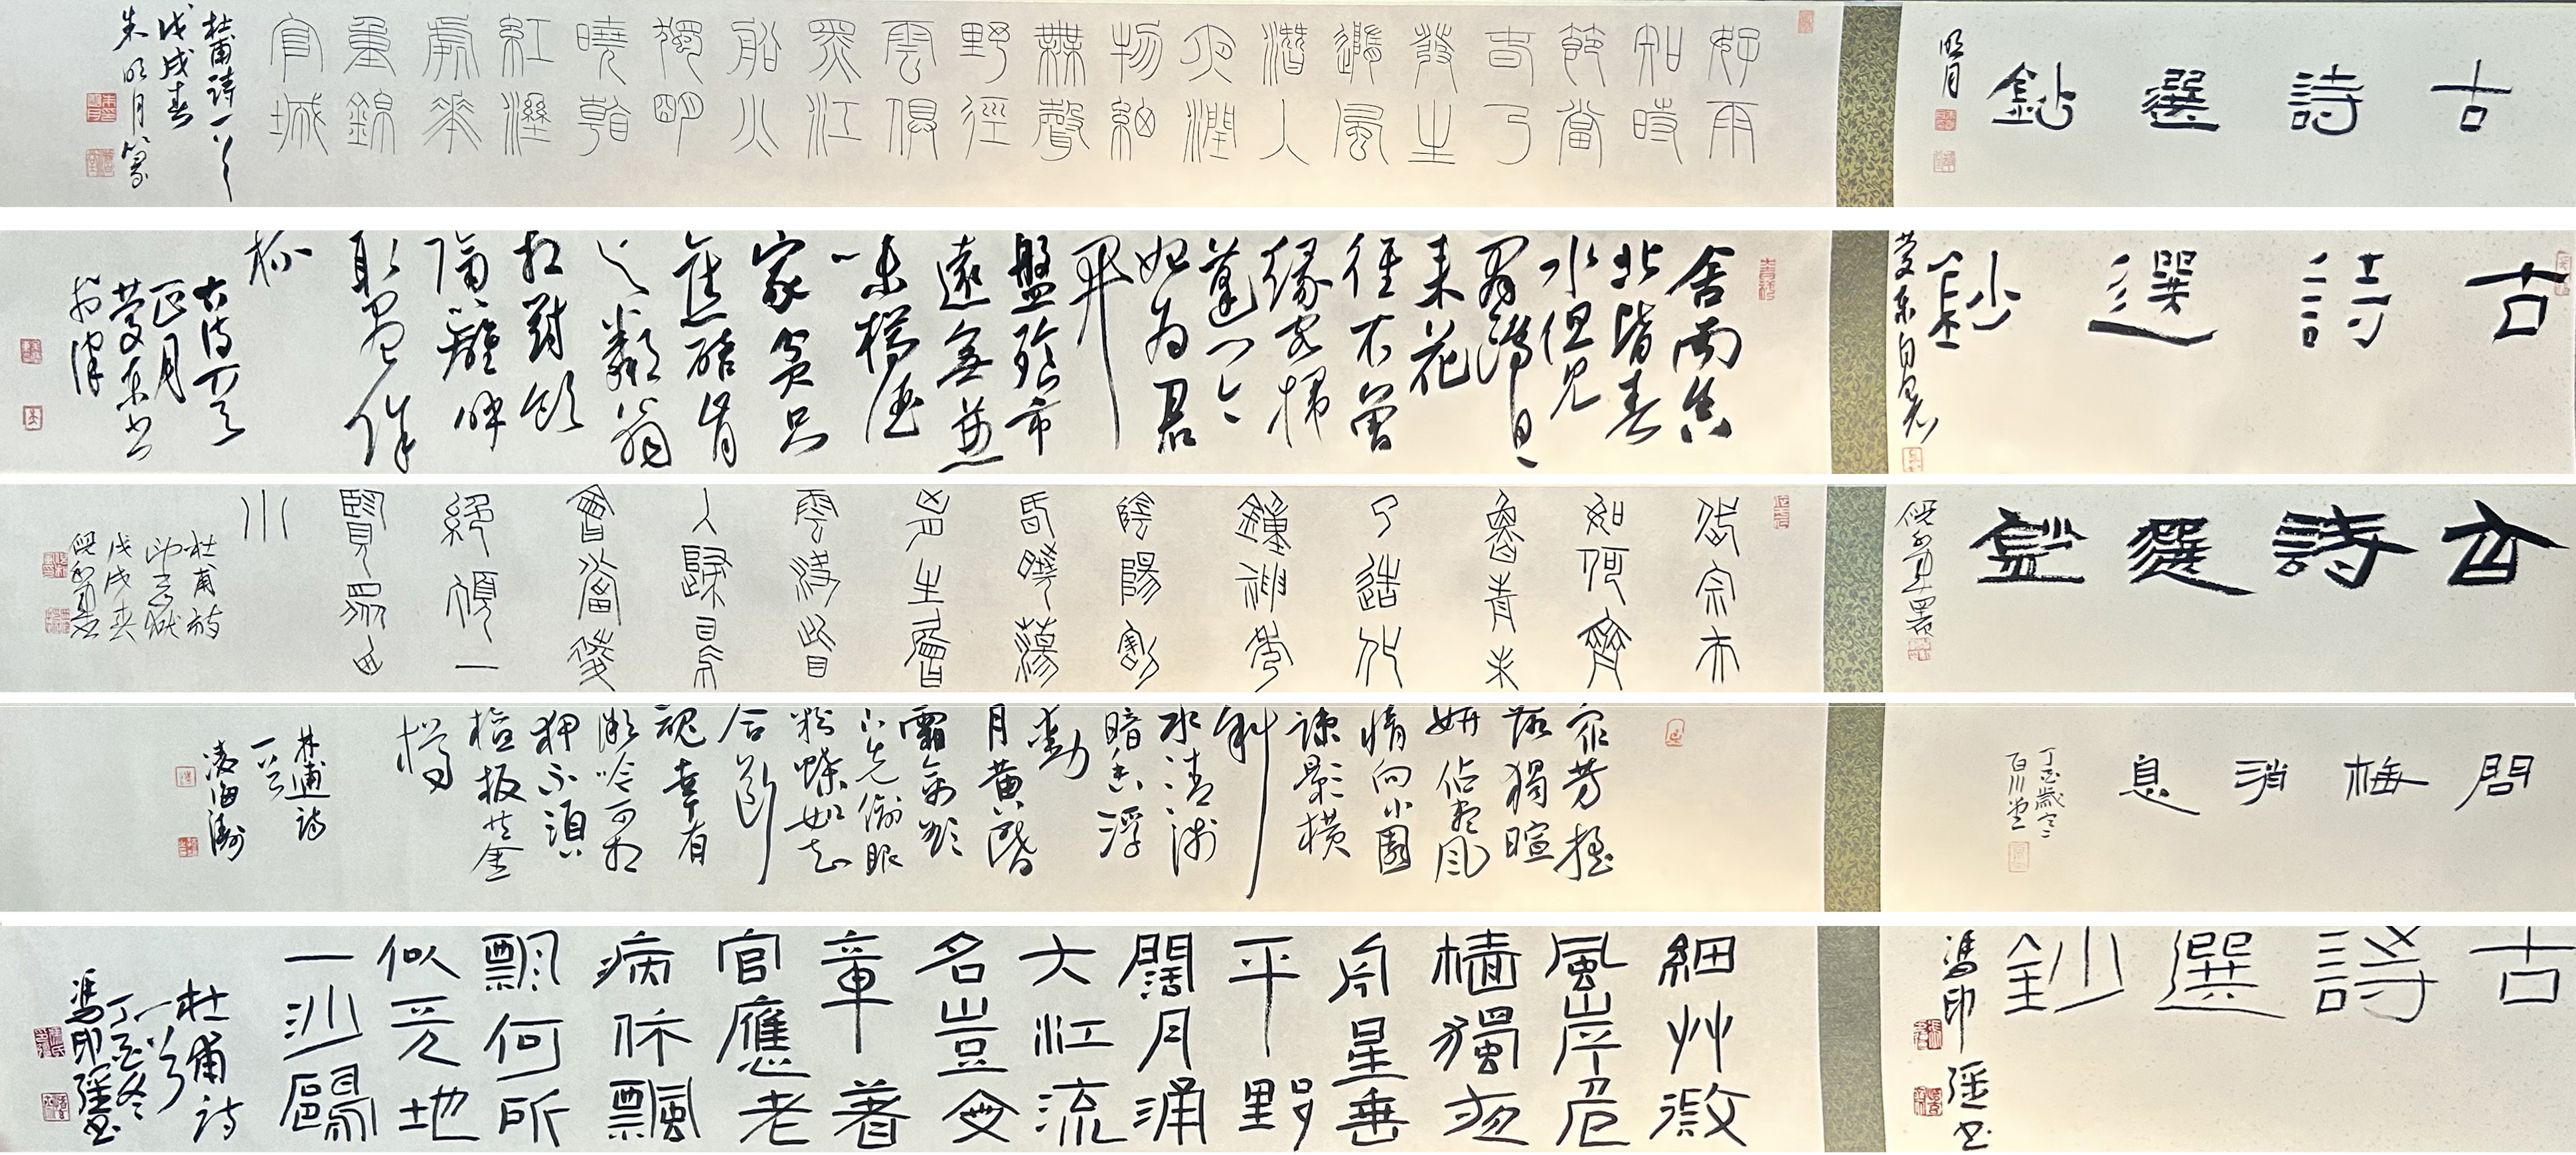 古詩選鈔
明月
好雨
知時
節當
春乃
發生
隨風
潛入
夜潤
物細
無聲
野徑
雲俱
黑江
船火
獨明
曉看
紅溼
處花
重錦
官城
杜甫詩一首
戊戌春
朱明月篆
古詩選鈔
慶東自署
舍南舍
北皆春
水但見
群鷗日日
來花
徑不曾
緣客掃
蓬門今
始為君
開
盤飧市
遠無兼
味樽酒
家貧只
舊醅肯
與鄰翁
相對飲
隔籬呼
取盡餘
杯
古詩一首
正月
慶東書
於津
古詩選鈔
岱宗夫
如何齊
魯青未
了造化
鐘神秀
陰陽割
昏曉蕩
胸生層
雲決眥
入歸鳥
會當凌
絕頂一
覽眾山
小
杜甫詩
戊戌春
問梅消息
丁酉歲寒
百川堂
眾芳搖
落獨暄
妍佔盡風
情向小園
疎影橫
斜
水清淺
暗香浮
動
月黃昏
霜禽欲
下先偷眼
粉蝶如知
合斷
魂幸有
微吟可相
狎不須
檀板共金
樽
林逋詩
一首
凌海濤
古詩選鈔
馮印強書
細艸微
風岸危
檣獨夜
舟星垂
平野
闊月涌
大江流
名豈文
章著
官應老
病休飄
飄何所
似天地
一沙鷗
杜甫詩
一首
丁酉冬
馮印強書